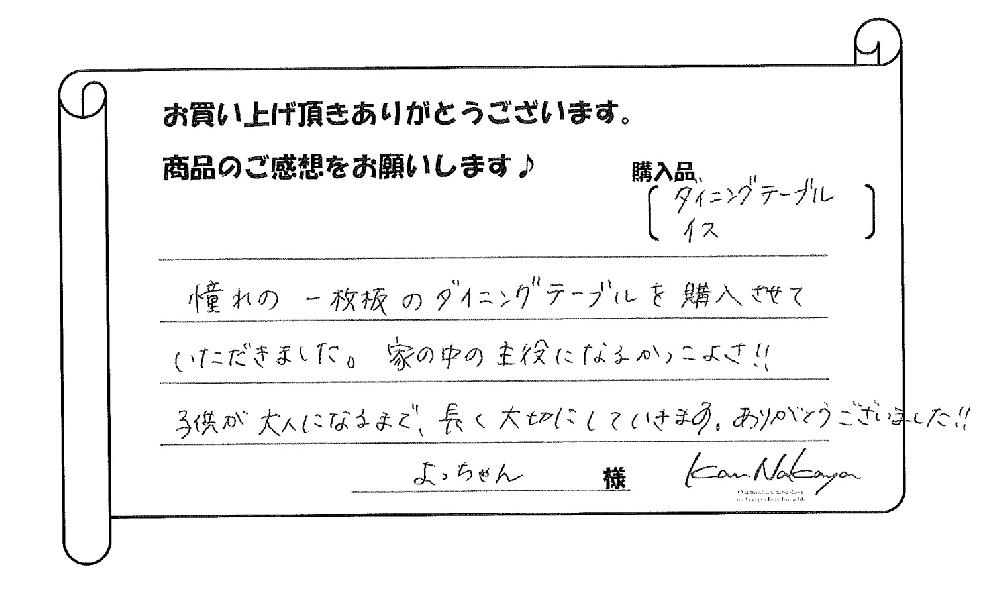 お買い上げ頂きありがとうございます。
商品のご感想をお願いします♪
購入品
ダイニングテーブル
イス
憧れの一枚板のダイニングテーブルを購入させて
いただきました。家の中の主役になるかっこよさ!!
子供が大人になるまで、長く大切にしていきます。ありがとうございました!!
よっちゃん 様
Kan Nakaya